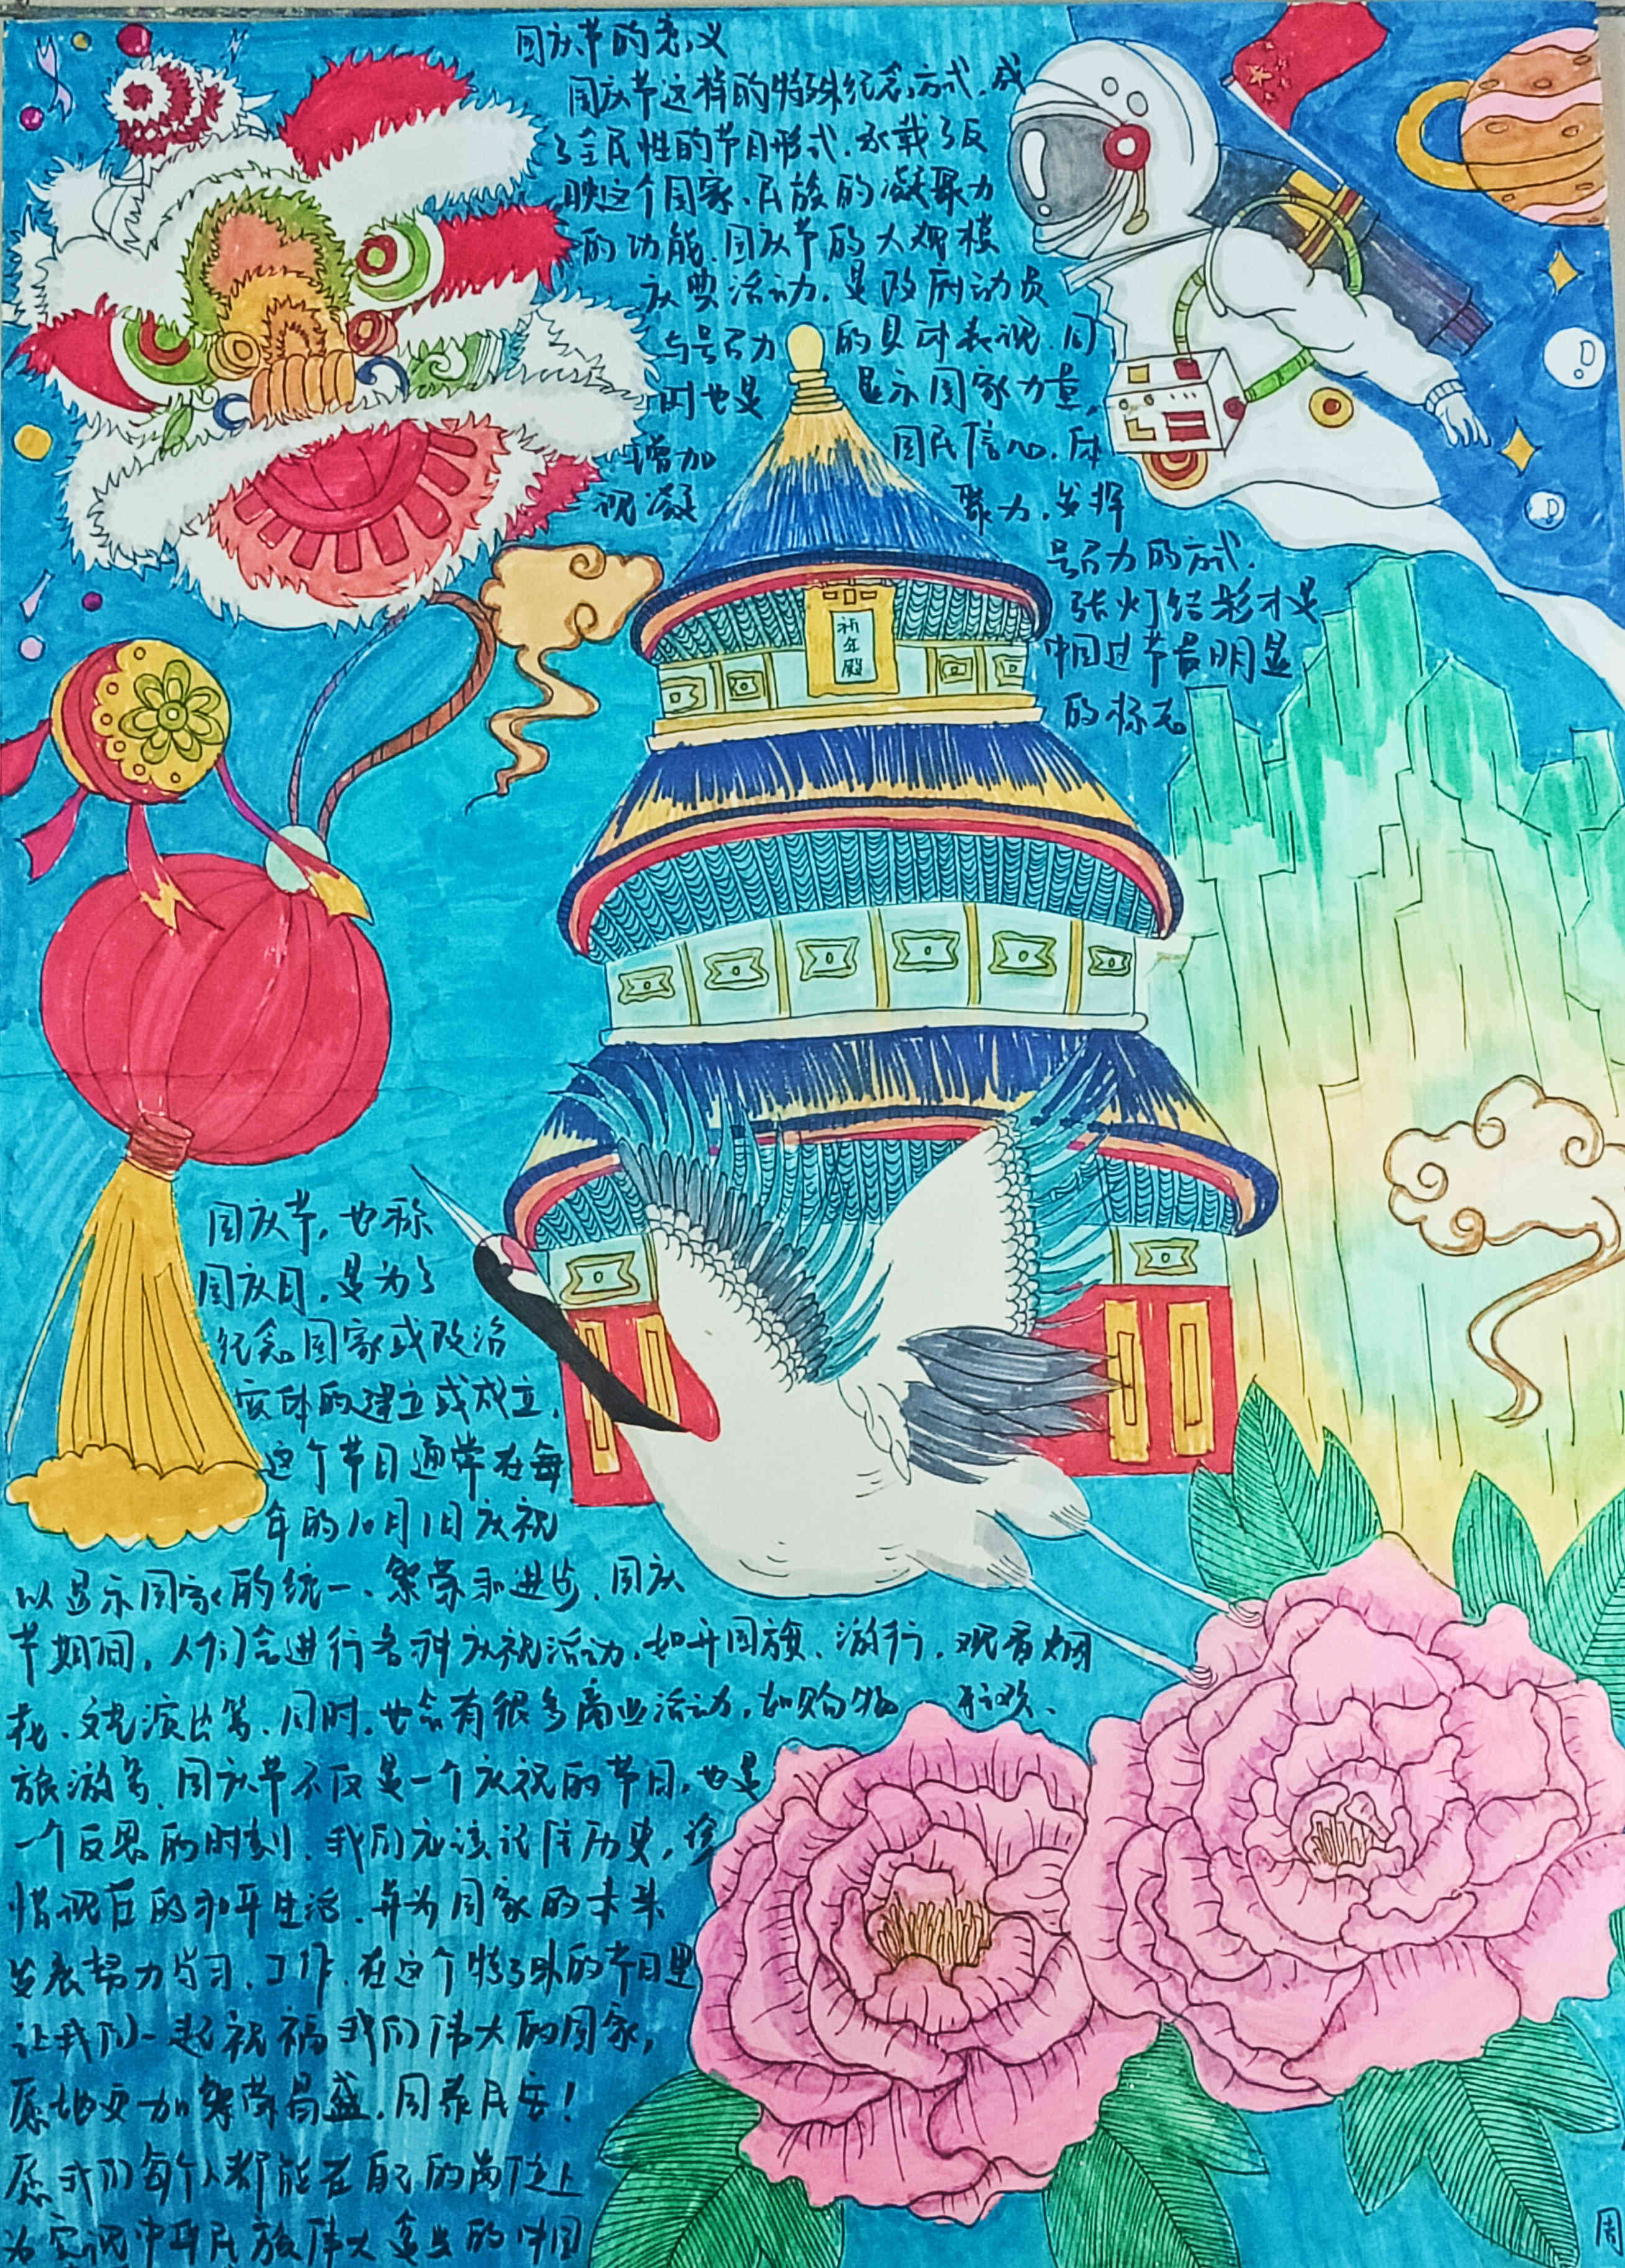 国庆节的意义
国庆节这样的特殊纪念方式，成
了全民性的节日形式，承载了反
映这个国家、民族的凝聚力
的功能，国庆节的大规模
庆典活动，是政府动员
与号召力 的具体表现，同
时也是 显示国家力量，
增加 国民信心，体
现凝 聚力，发挥
号召力的方式。
张灯结彩才是
中国过节最明显
的标志
祈年殿
国庆节，也称
国庆日，是为了
纪念国家或政治
实体的建立或成立，
这个节日通常在每
年的10月1日庆祝
以显示国家的统一、繁荣和进步，国庆
节期间，人们会进行各种庆祝活动，如升国旗、游行，观看烟
花、文艺演出等，同时，也会有很多商业活动，如购物 狂欢、
旅游等，国庆节不仅是一个庆祝的节日，也是
一个反思的时刻，我们应该记住历史，珍
惜现在的和平生活，并为国家的未来
发展努力学习、工作，在这个特殊的节日里
让我们一起祝福我们伟大的国家，
愿她更加繁荣昌盛，国泰民安！
愿我们每个人都能在自己的岗位上
为实现中华民族伟大复兴的中国
周